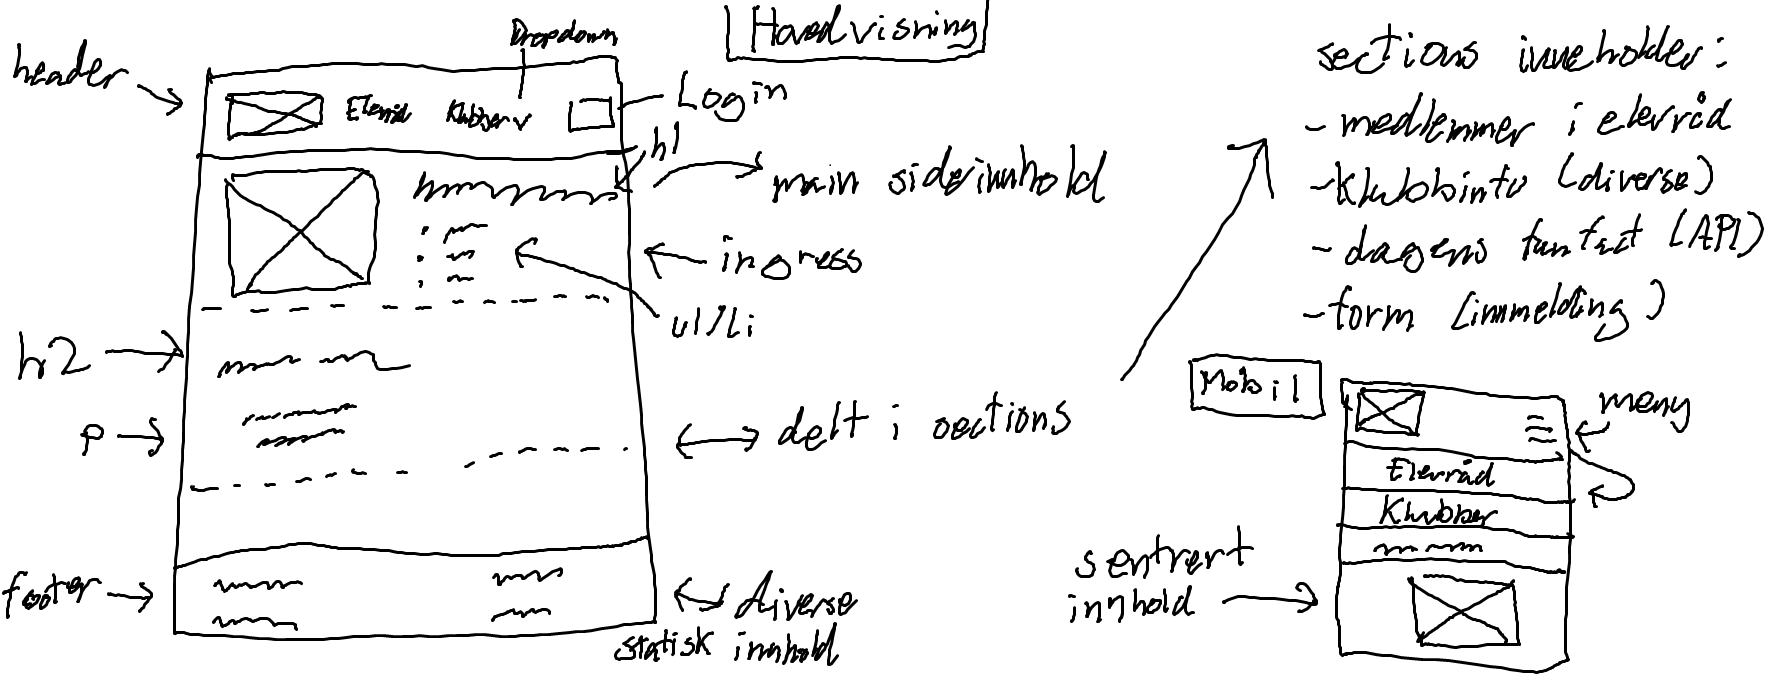 Hovedvisning
Dropdown
header
Elevråd
Klubber v
Login
h1
main sideinnhold
ingress
ul/li
h2
p
delt i sections
footer
diverse
statisk innhold
sections inneholder:
- medlemmer i elevråd
- klubbinfo (diverse)
- dagens funfact (API)
- form (innmelding)
Mobil
meny
Elevråd
Klubber
sentrert
innhold